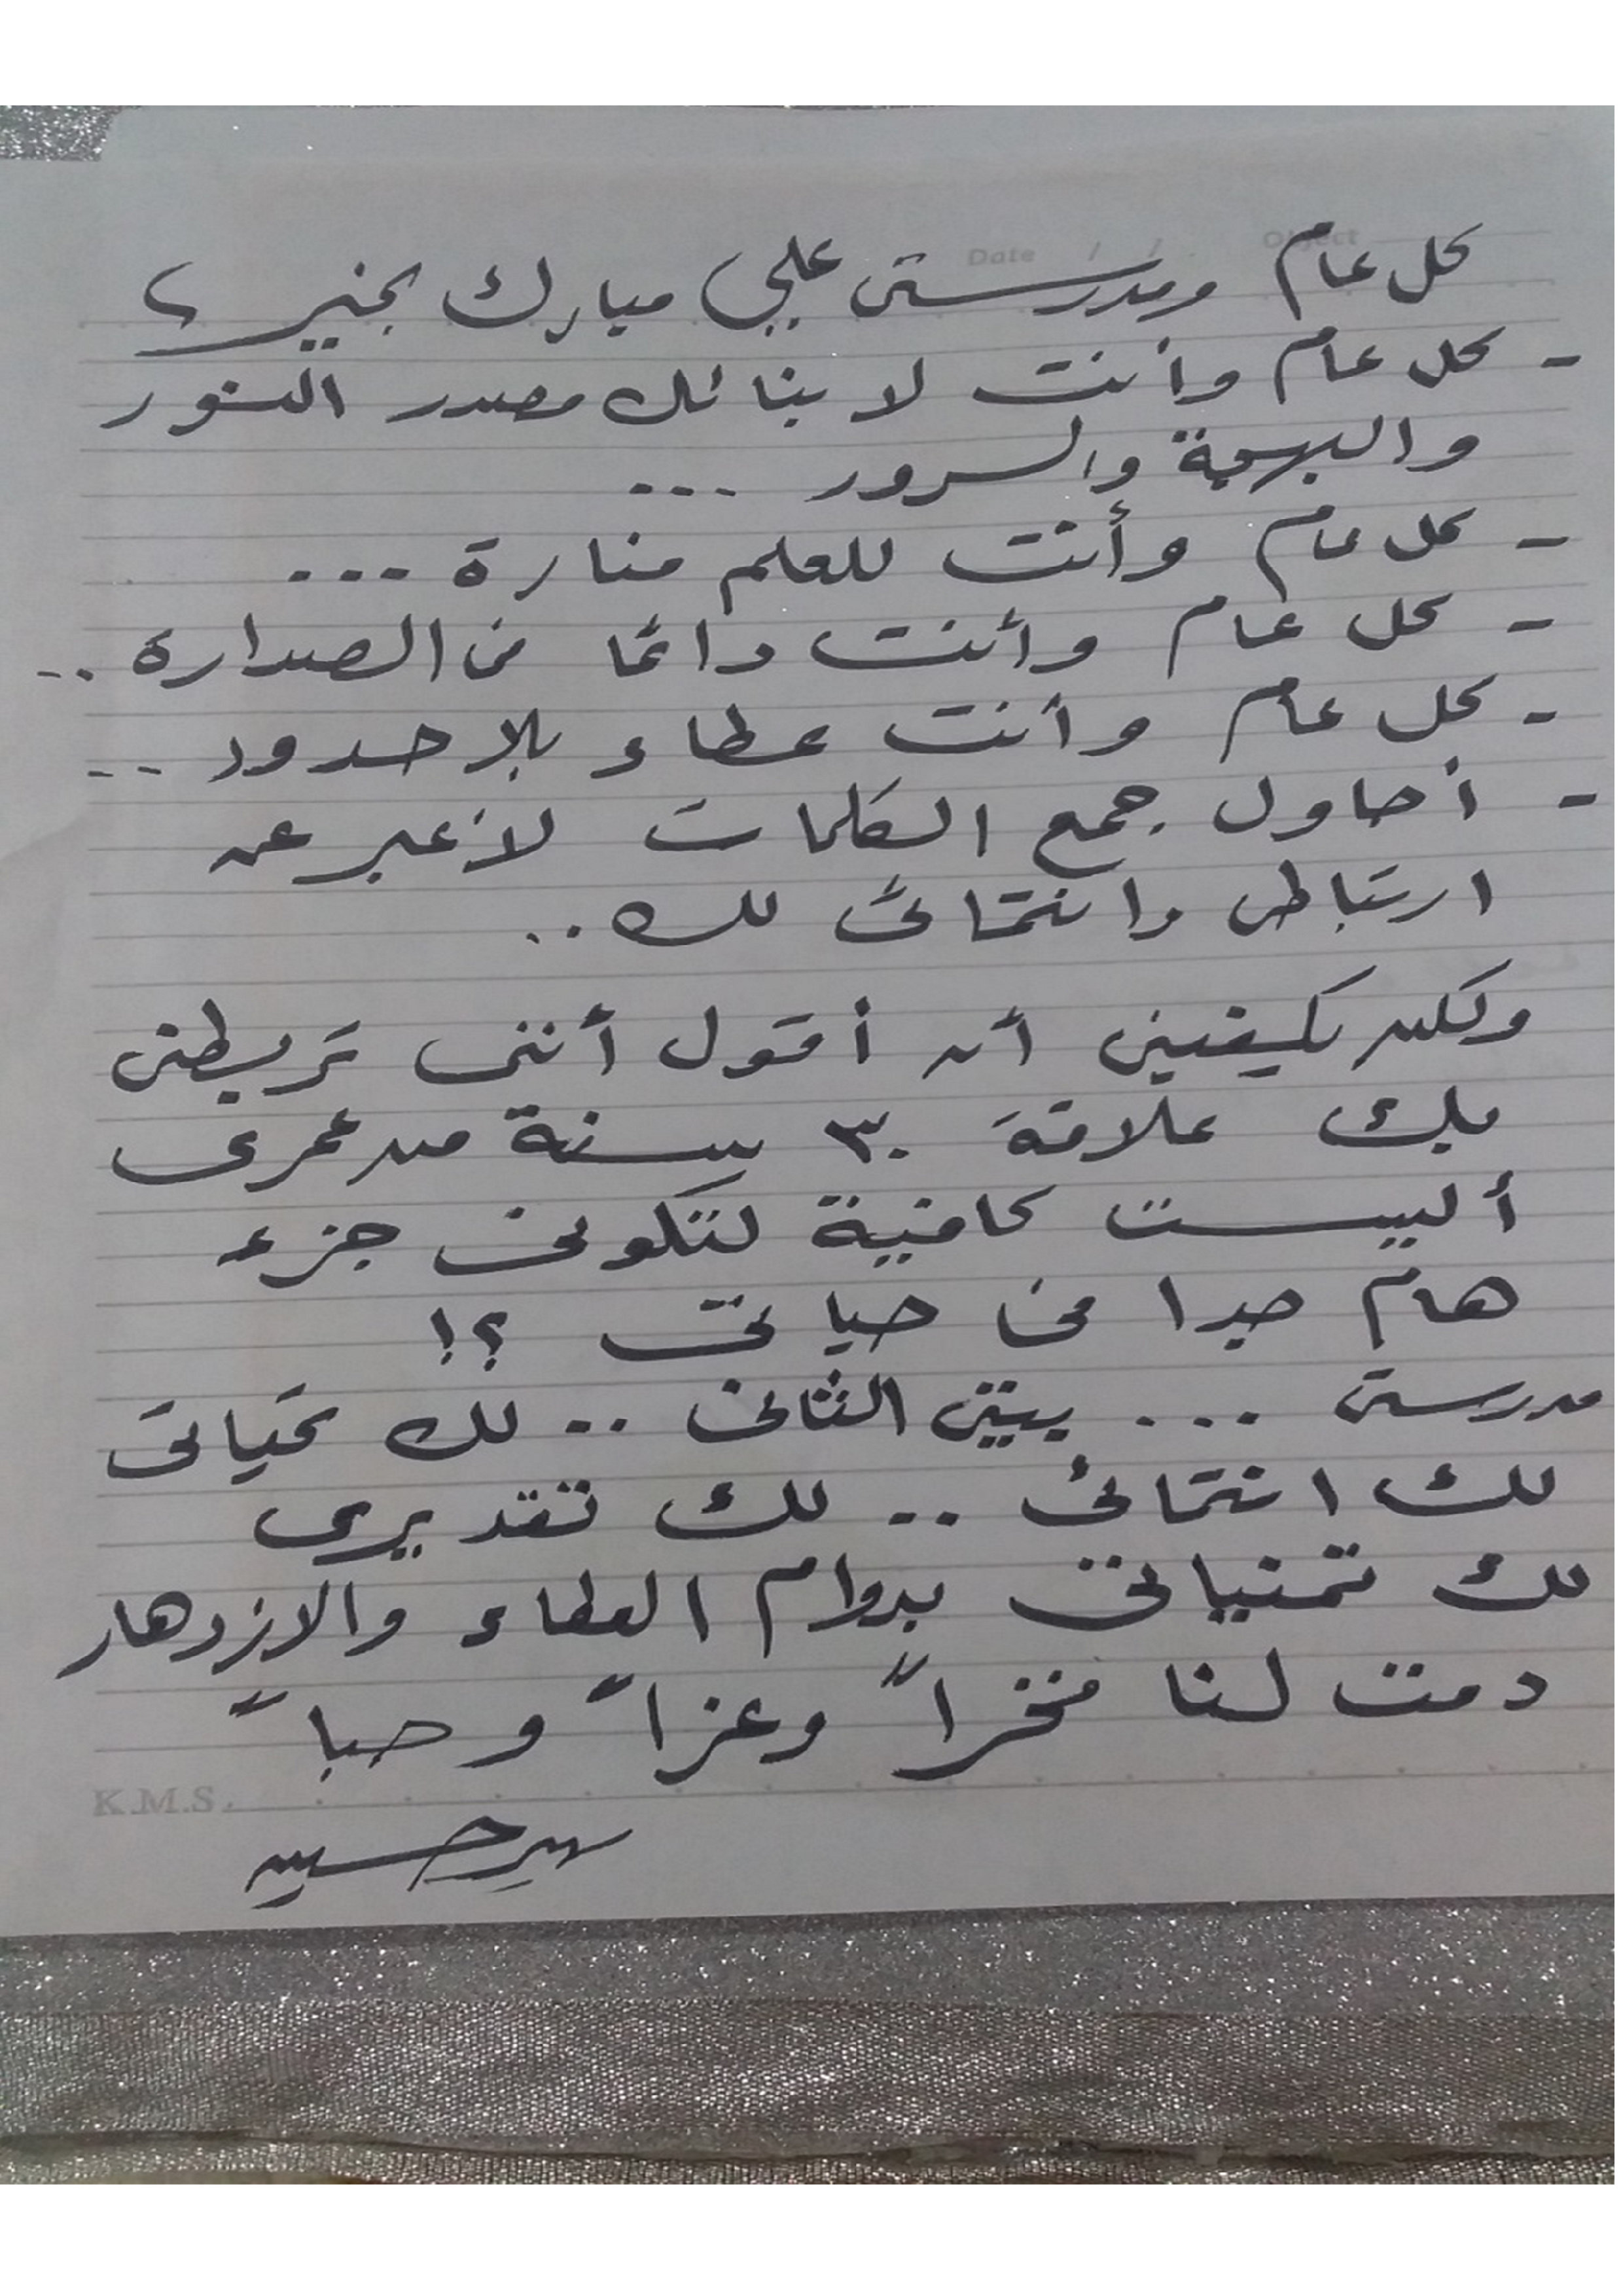 Date / / Object
كل عام ومدرستى علي مبارك بخير،
- كل عام وأنت لابنائك مصدر النور
والبهجة والسرور ...
- كل عام وأنت للعلم منارة ...
- كل عام وأنت دائمًا فى الصدارة ..
- كل عام وأنت عطاء بلا حدود ..
- أحاول جمع الكلمات لأعبر عن
ارتباطى وانتمائى لك ..
ولكن يكفينى أن أقول أننى تربطنى
بك علاقة ٣٠ سنة من عمرى
أليست كافية لتكونى جزء
هام جدا فى حياتى ؟!
مدرستى ... بيتى الثانى .. لك تحياتى
لك انتمائى .. لك تقديرى
لك تمنياتى بدوام العطاء والازدهار
دمت لنا فخراً وعزاً وحباً
K.M.S.
حسين